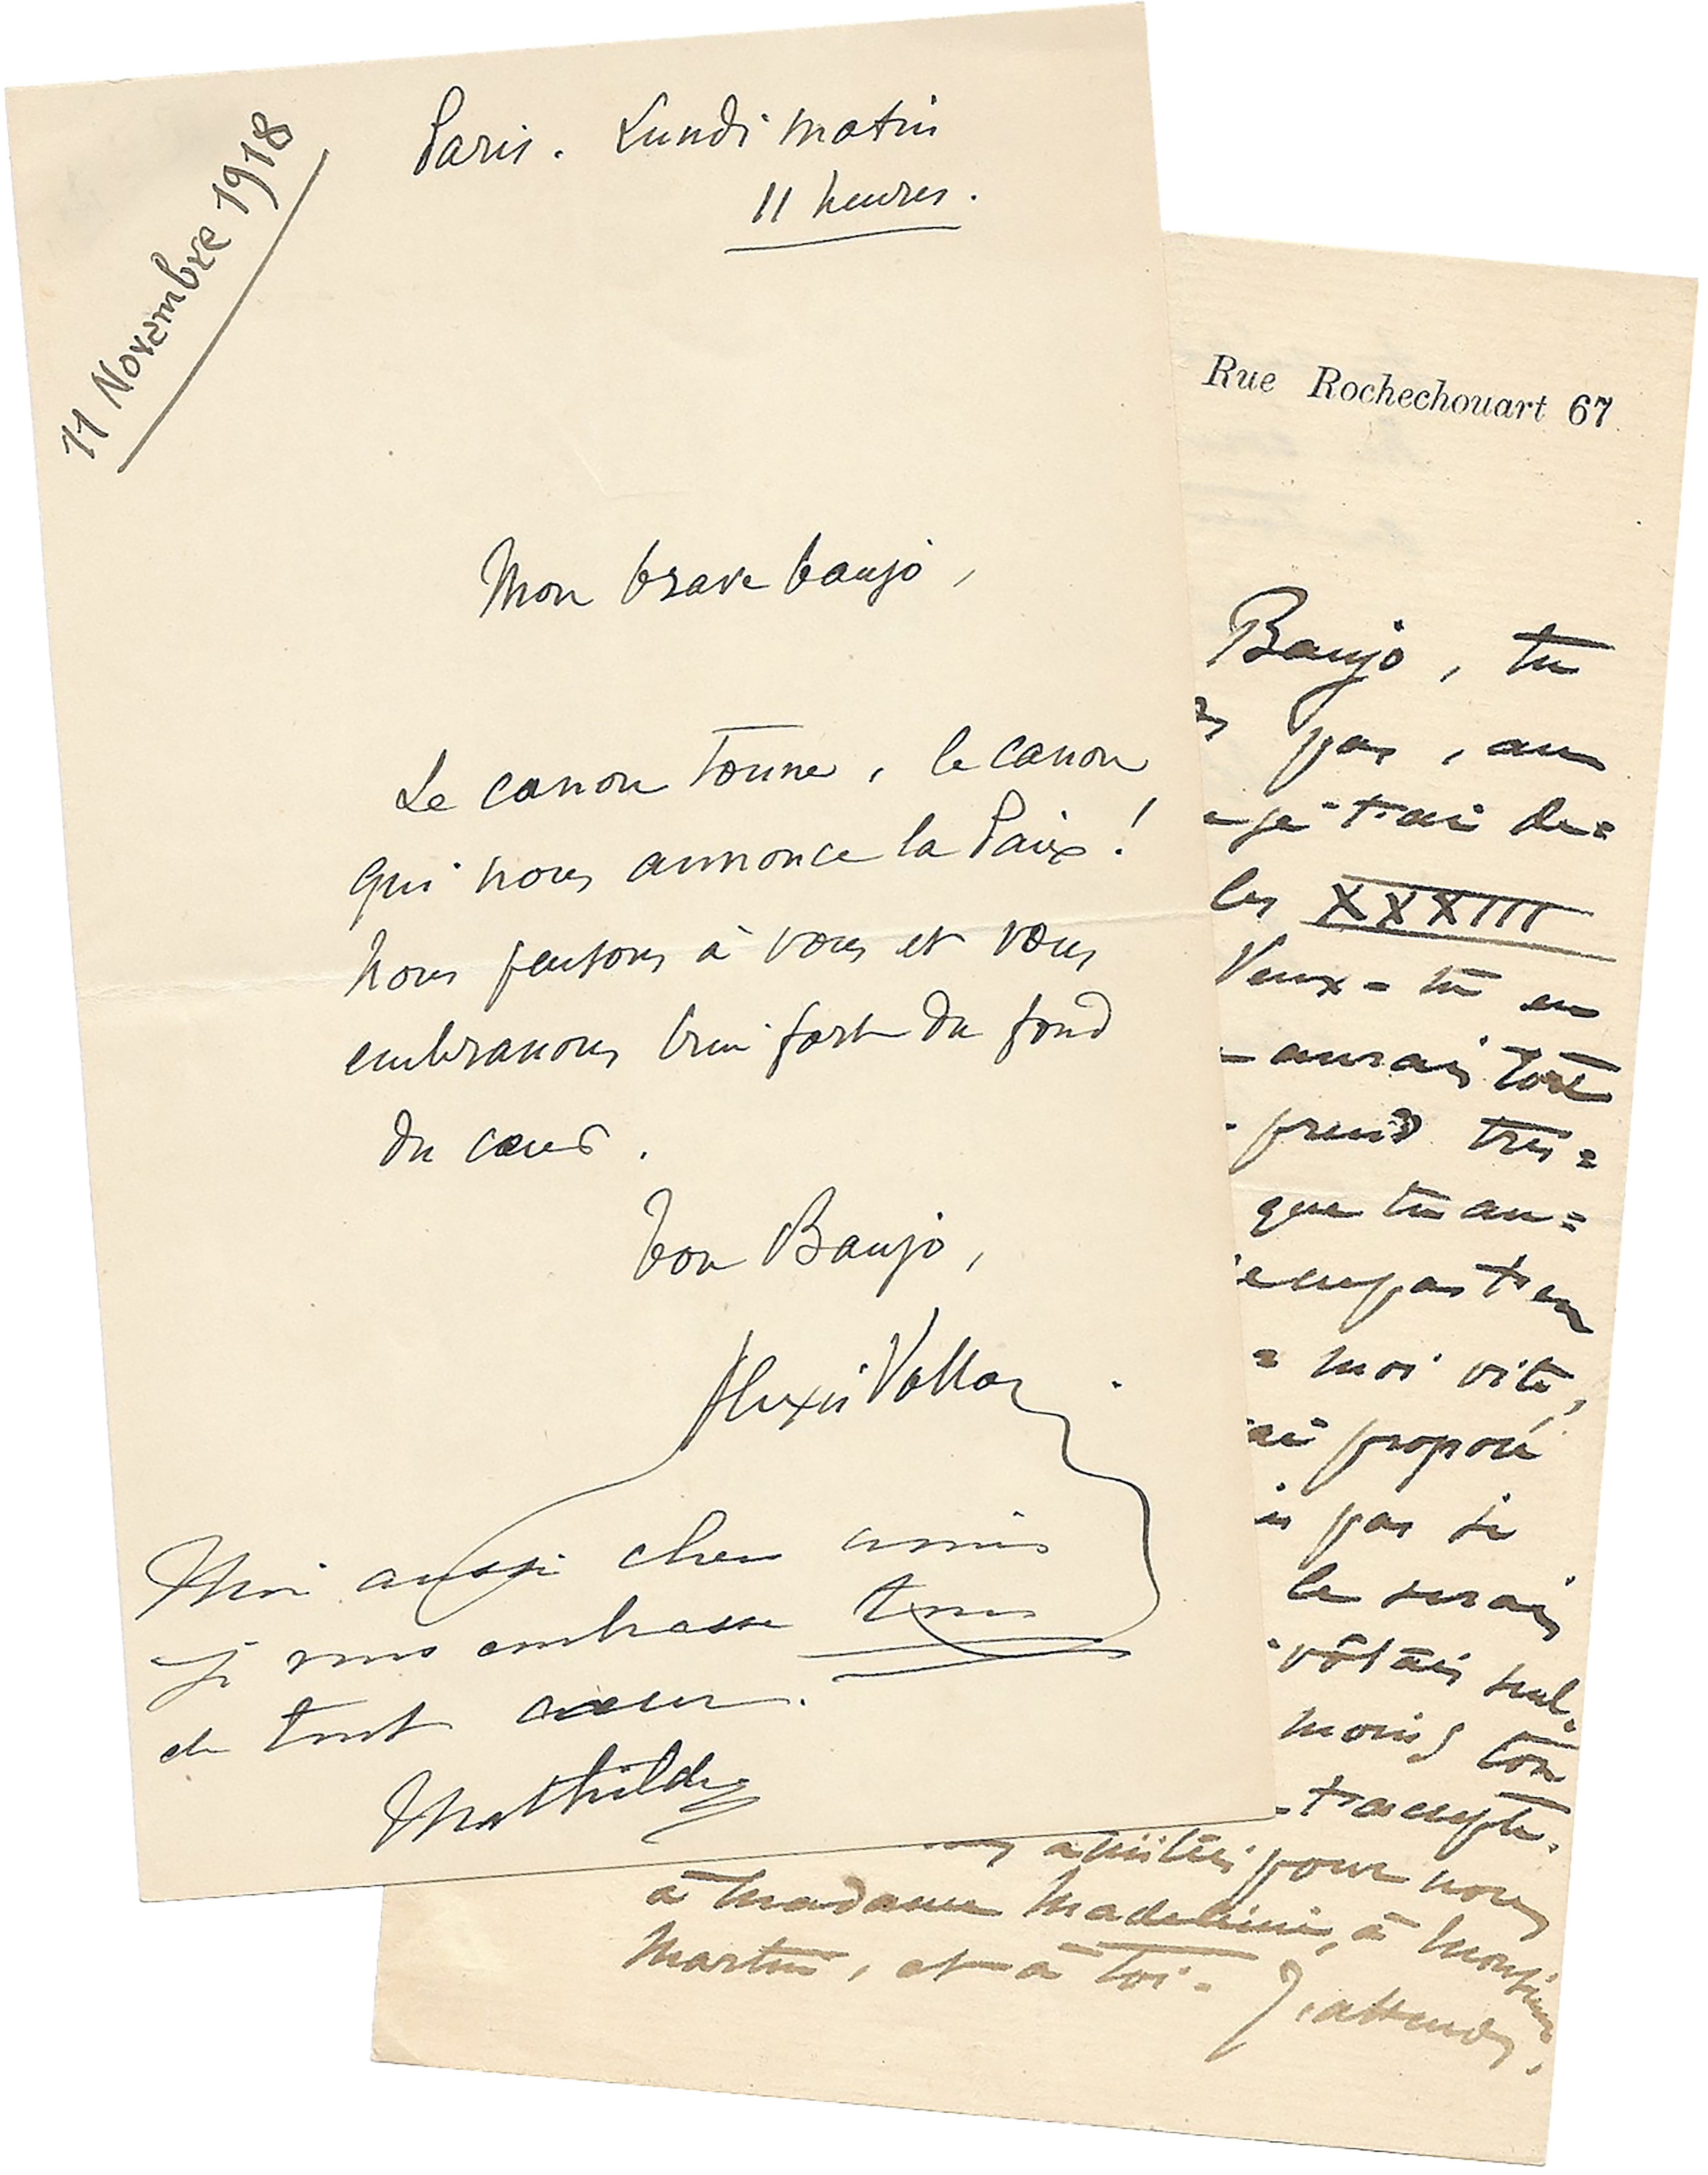 11 Novembre 1918
Paris. Lundi matin
11 heures.
Mon brave banjo,
Le canon tonne, le canon
qui nous annonce la Paix!
Nous pensons à vous et vous
embrassons bien fort du fond
du cœur.
Ton Banjo,
Alexis
Moi aussi chers amis
je vous embrasse tous
de tout cœur.
Mathilde
Rue Rochechouart 67
Banjo, tu
pas, au
je t'ai de=
les XXXIII
Veux-tu en
aurais
prend très=
que tu au=
= moi vite,
ai proposé
is pas si
le serais
moins ton
t'accepte.
amitiés pour nous
à Madame Madeleine, à Monsieur
Martin, et à toi.
J'attends.